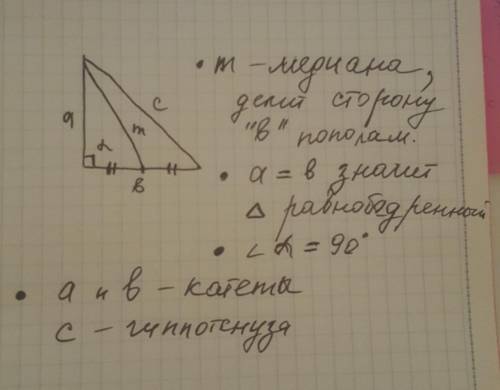 a
c
α
m
в
• m – медиана,
делит сторону
"в" пополам.
• a = в значит
△ равнободренный
• ∠α = 90°
• a и в – катеты
c – гиппотенуза